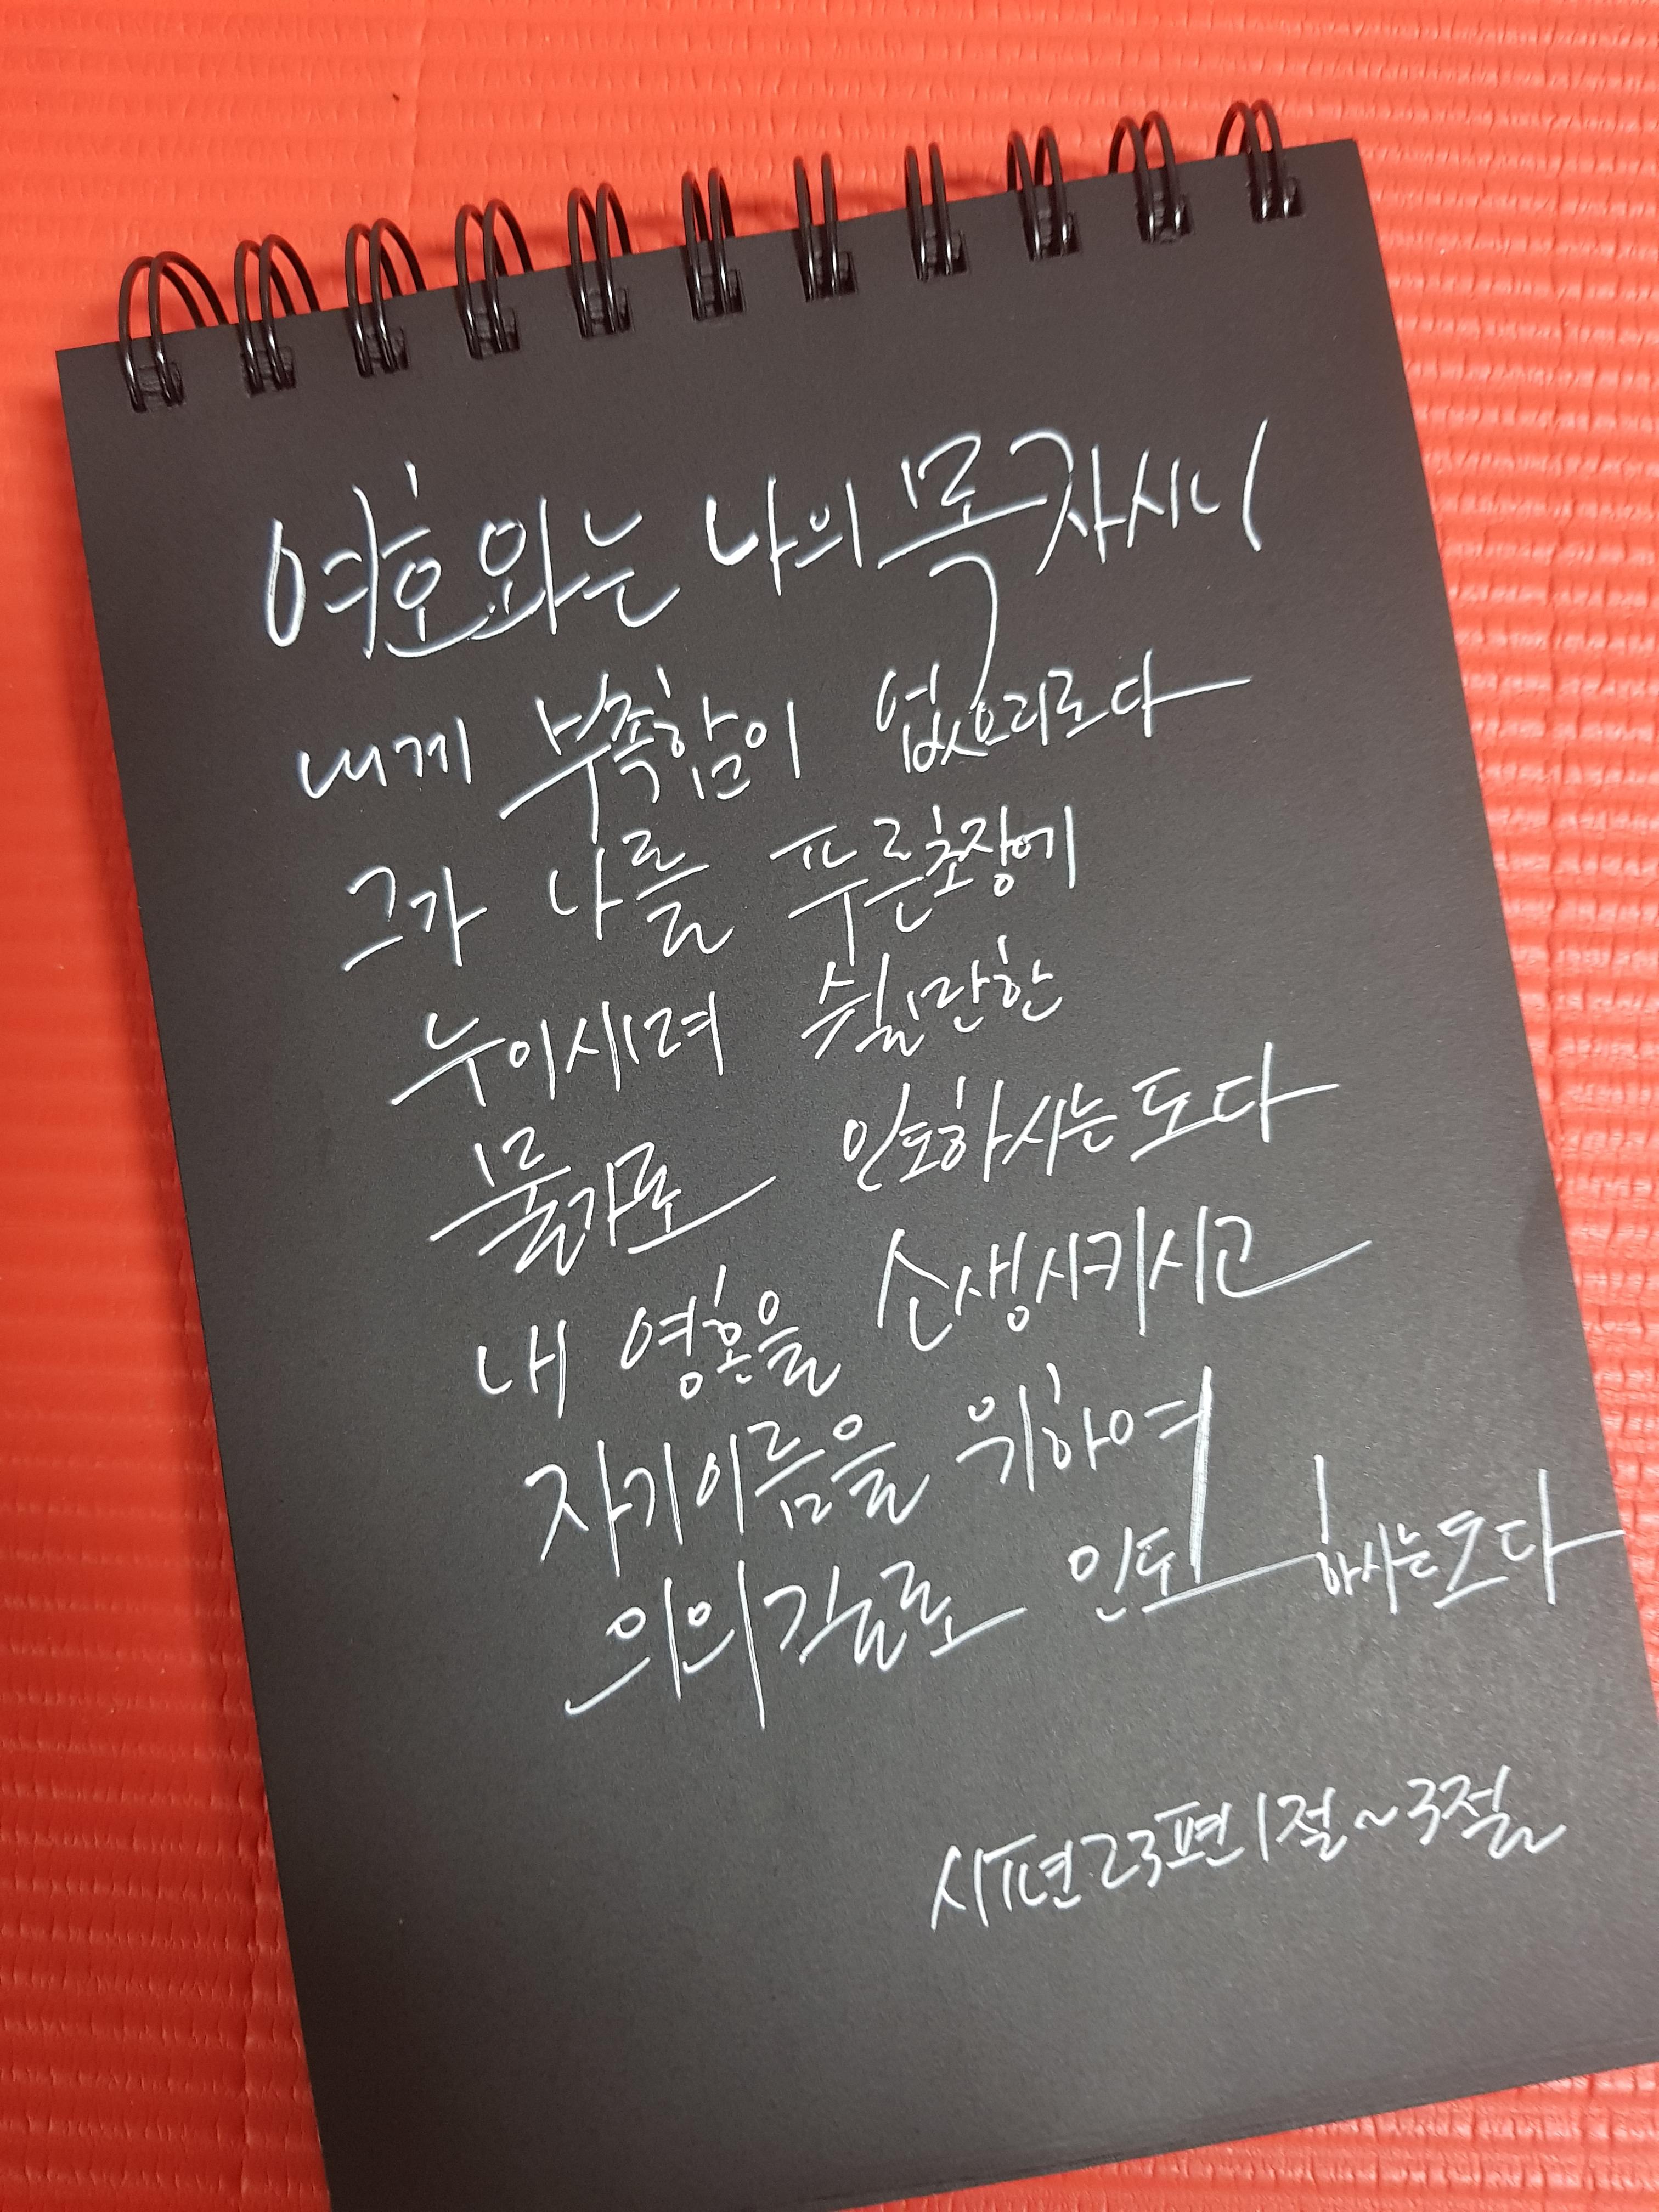 여호와는 나의 목자시니
내게 부족함이 없으리로다
그가 나를 푸른초장에
누이시며 쉴만한
물가로 인도하시는도다
내 영혼을 소생시키시고
자기이름을 위하여
의의길로 인도하시는도다
시편23편1절~3절